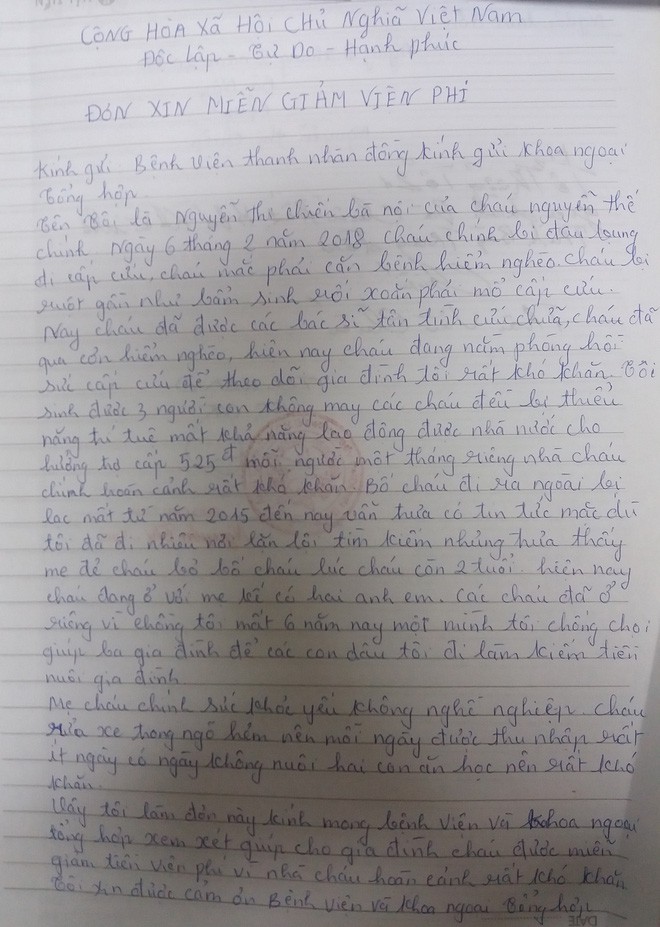 CỘNG HÒA XÃ HỘI CHỦ NGHĨA VIỆT NAM
Độc lập - Tự Do - Hạnh phúc
ĐƠN XIN MIỄN GIẢM VIỆN PHÍ
Kính gửi Bệnh viện thanh nhàn đồng kính gửi khoa ngoại
tổng hợp.
Tên tôi là Nguyễn thị chiến bà nội của cháu nguyễn thế
chinh Ngày 6 tháng 2 năm 2018 cháu chinh bị đau bụng
đi cấp cứu, cháu mắc phải căn bệnh hiểm nghèo. cháu bị
ruột gần như bẩm sinh rối xoắn phải mổ cấp cứu.
Nay cháu đã được các bác sĩ tận tình cứu chữa, cháu đã
qua cơn hiểm nghèo, hiện nay cháu đang nằm phòng hồi
sức cấp cứu để theo dõi gia đình tôi rất khó khăn. tôi
sinh được 3 người con không may các cháu đều bị thiểu
năng trí tuệ mất khả năng lao động được nhà nước cho
hưởng trợ cấp 525đ mỗi người một tháng riêng nhà cháu
chinh hoàn cảnh rất khó khăn. Bố cháu đi ra ngoài bị
lạc mất từ năm 2015 đến nay vẫn trưa có tin tức mặc dù
tôi đã đi nhiều nơi lặn lội tìm kiếm nhưng trưa thấy
mẹ đẻ cháu bỏ bố cháu lúc cháu còn 2 tuổi. hiện nay
cháu đang ở với mẹ kế có hai anh em. các cháu đã ở
riêng vì chồng tôi mất 6 năm nay một mình tôi chống chọi
giúp ba gia đình để các con dâu tôi đi làm kiếm tiền
nuôi gia đình.
Mẹ cháu chinh sức khỏe yếu không nghề nghiệp. cháu
rửa xe trong ngõ hẻm nên mỗi ngày được thu nhập rất
ít ngày có ngày không nuôi hai con ăn học nên rất khó
khăn.
Vậy tôi làm đơn này kính mong bệnh viện và khoa ngoại
tổng hợp xem xét giúp cho gia đình cháu được miễn
giảm tiền viện phí vì nhà cháu hoàn cảnh rất khó khăn
tôi xin được cảm ơn Bệnh viện và khoa ngoại tổng hợp
DATE